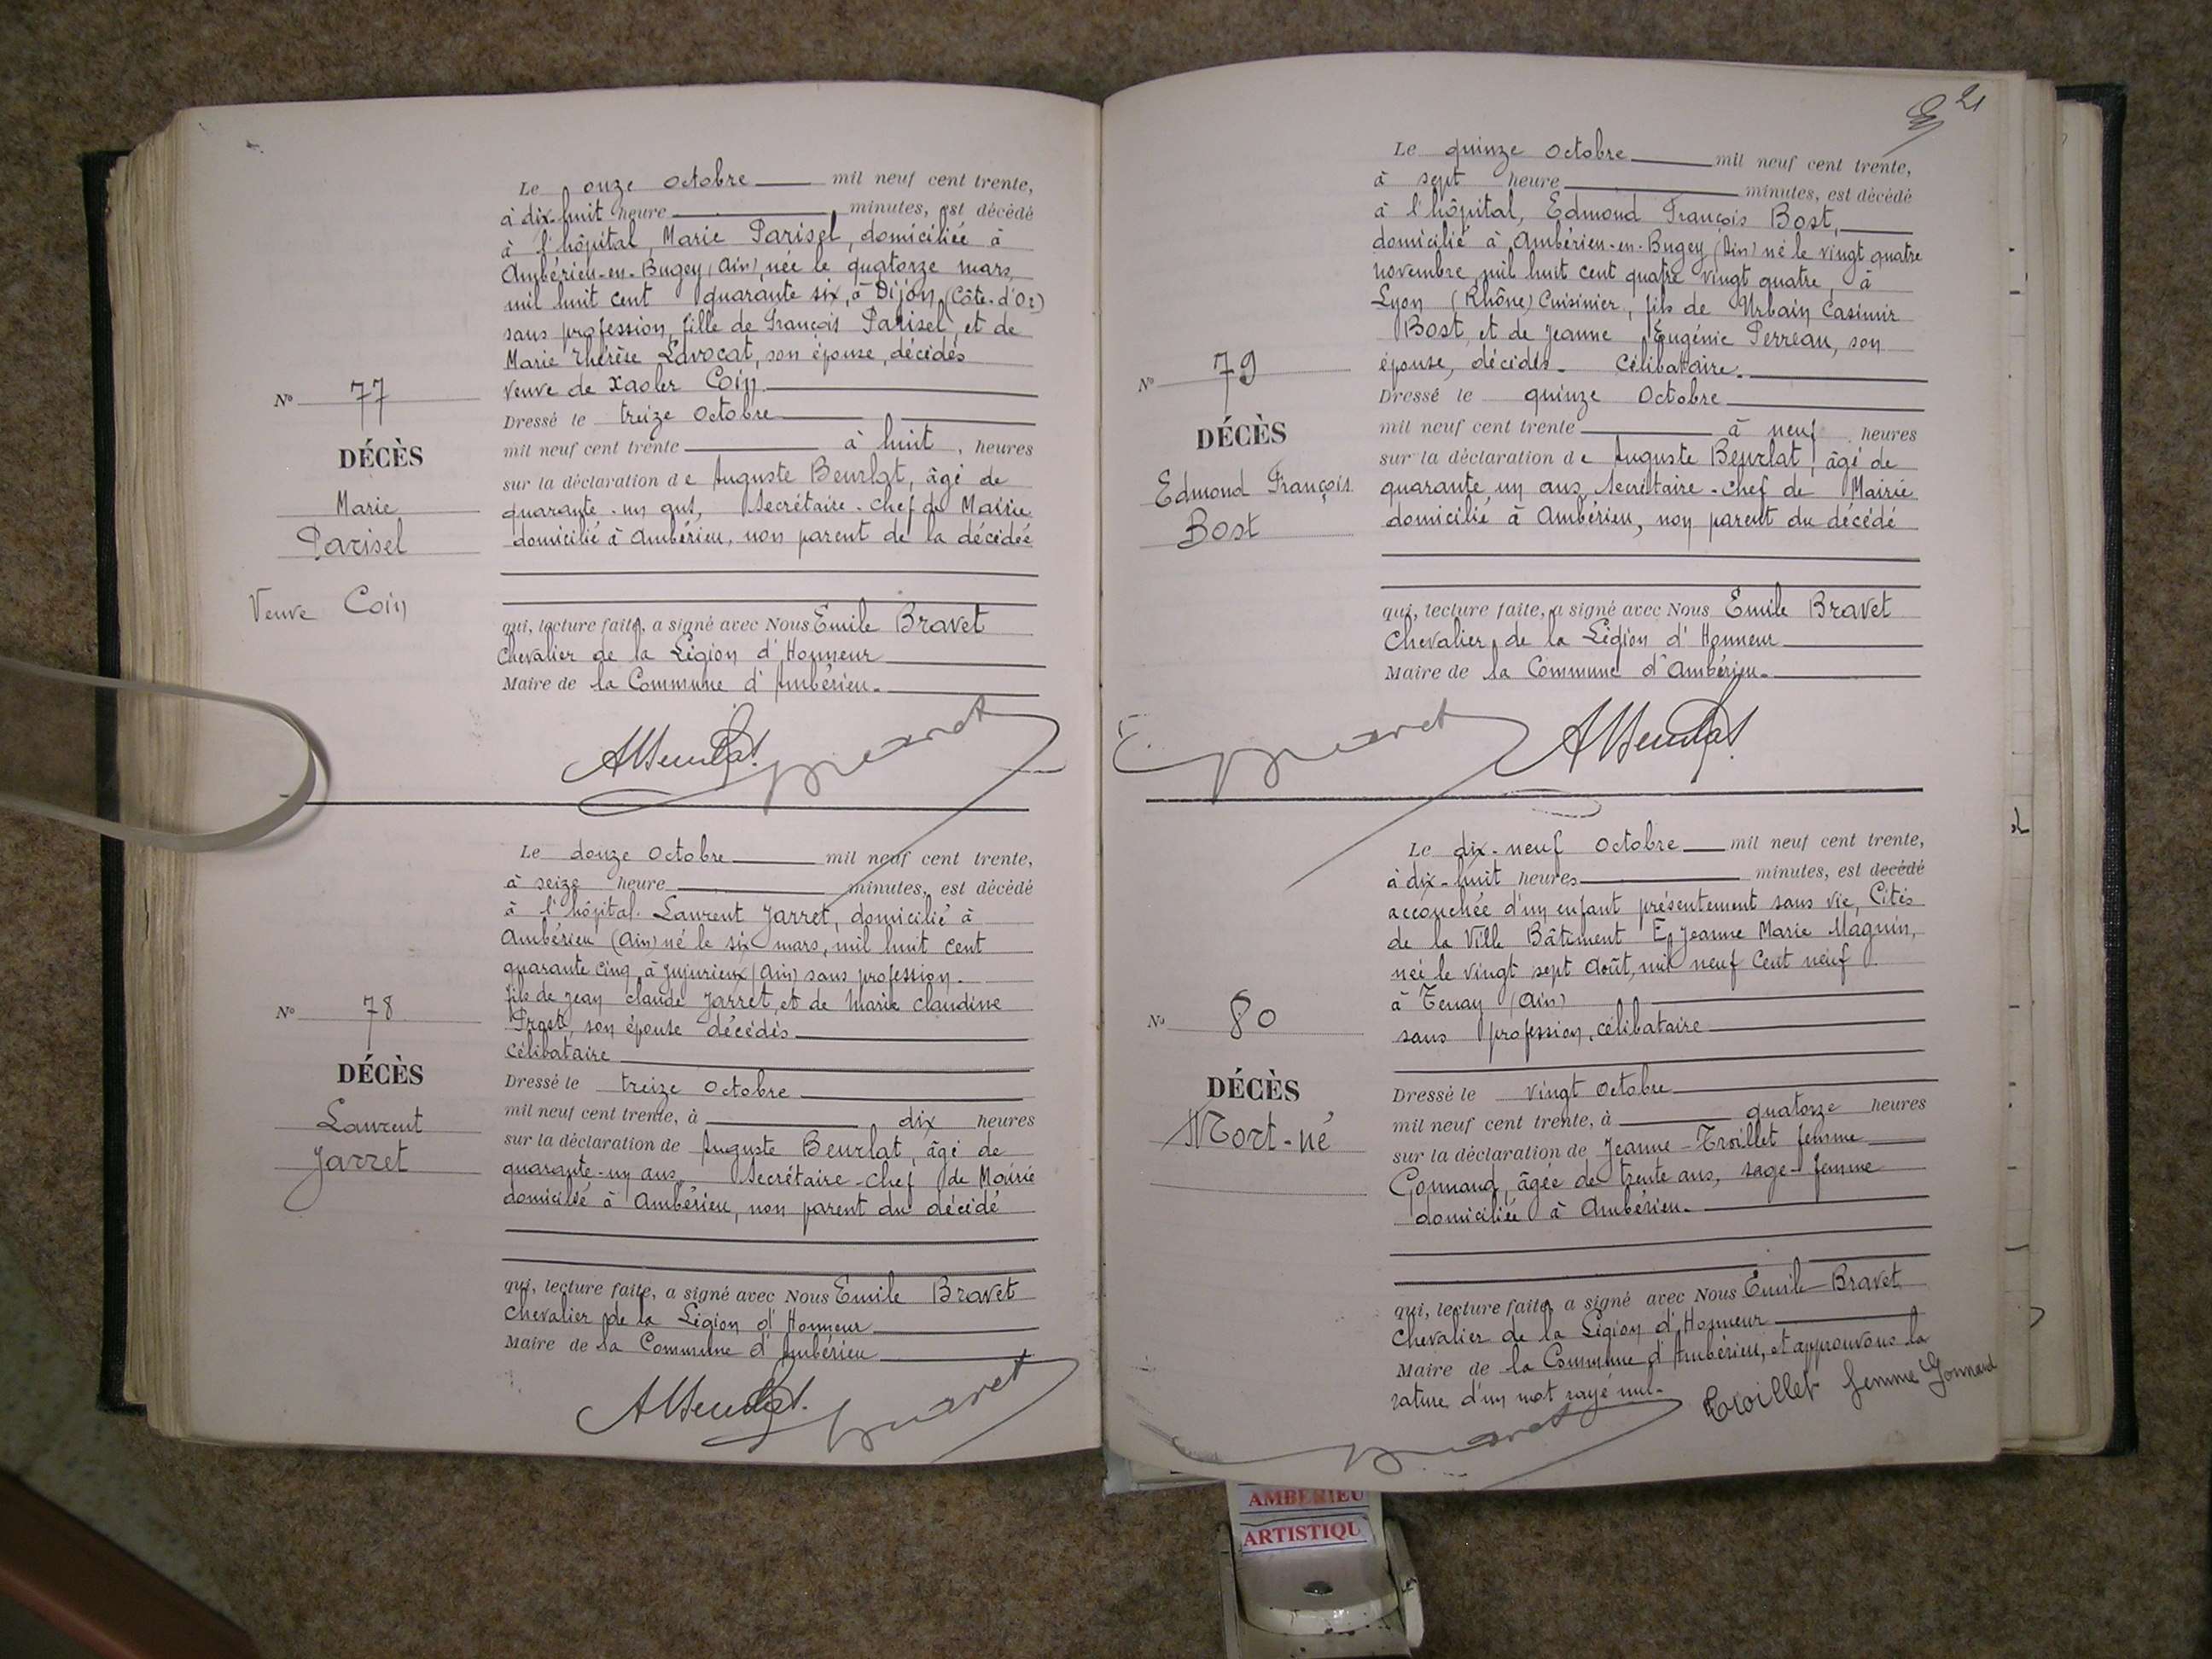 Le onze Octobre mil neuf cent trente,
à dix-huit heure minutes, est décédé
à l'hôpital, Marie Parisel, domiciliée à
Ambérieu-en-Bugey (Ain) née le quatorze mars,
mil huit cent quarante six, à Dijon (Côte-d'Or)
sans profession, fille de François Parisel, et de
Marie Thérèse Lavocat, son épouse, décédés
Veuve de Coin.
N° 77
Dressé le treize Octobre
mil neuf cent trente à huit, heures
DÉCÈS
sur la déclaration de Auguste Beurlat, âgé de
Marie
quarante-un ans, Secrétaire-chef de Mairie
Parisel
domicilié à Ambérieu, non parent de la décédée
Veuve Coin
qui, lecture faite, a signé avec Nous Emile Bravet
Chevalier de la Légion d'Honneur
Maire de la Commune d'Ambérieu.
ABeurlat. Bravet
Le douze Octobre mil neuf cent trente,
à seize heure minutes, est décédé
à l'hôpital. Laurent Jarret, domicilié à
Ambérieu (Ain) né le six mars, mil huit cent
quarante cinq, à Jujurieux (Ain) sans profession.
fils de Jean Claude Jarret, et de Marie Claudine
N° 78
son épouse décédés
célibataire
DÉCÈS
Dressé le treize Octobre
Laurent
mil neuf cent trente, à dix heures
Jarret
sur la déclaration de Auguste Beurlat, âgé de
quarante-un ans, Secrétaire-chef de Mairie
domicilié à Ambérieu, non parent du décédé
qui, lecture faite, a signé avec Nous Emile Bravet
Chevalier de la Légion d'Honneur
Maire de la Commune d'Ambérieu
ABeurlat. Bravet
Le quinze Octobre mil neuf cent trente,
à sept heure minutes, est décédé
à l'hôpital, Edmond François Bost,
domicilié à Ambérieu-en-Bugey (Ain) né le vingt quatre
novembre mil huit cent quatre vingt quatre, à
Lyon (Rhône) Cuisinier, fils de Urbain Casimir
Bost, et de Jeanne Eugénie Perreau, son
épouse, décédés. Célibataire.
N° 79
Dressé le quinze Octobre
mil neuf cent trente à neuf heures
DÉCÈS
sur la déclaration de Auguste Beurlat, âgé de
Edmond François
quarante un ans, Secrétaire-chef de Mairie
Bost
domicilié à Ambérieu, non parent du décédé
qui, lecture faite, a signé avec Nous Emile Bravet
Chevalier de la Légion d'Honneur
Maire de la Commune d'Ambérieu.
E. Bravet ABeurlat.
Le dix-neuf Octobre mil neuf cent trente,
à dix-huit heures minutes, est decédé
accouchée d'un enfant présentement sans vie, Cités
de la Ville Bâtiment E, Jeanne Marie Magnin,
née le vingt sept Août, mil neuf cent neuf
à Tenay (Ain)
N° 80
sans profession, célibataire
DÉCÈS
Dressé le vingt Octobre
Mort-né
mil neuf cent trente, à quatorze heures
sur la déclaration de Jeanne Troillet femme
Gonnand, âgée de trente ans, sage-femme
domiciliée à Ambérieu.
qui, lecture faite, a signé avec Nous Emile Bravet
Chevalier de la Légion d'Honneur
Maire de la Commune d'Ambérieu, et approuvons la
rature d'un mot rayé nul.
Troillet femme Gonnand
Bravet
AMBERIEU
ARTISTIQU